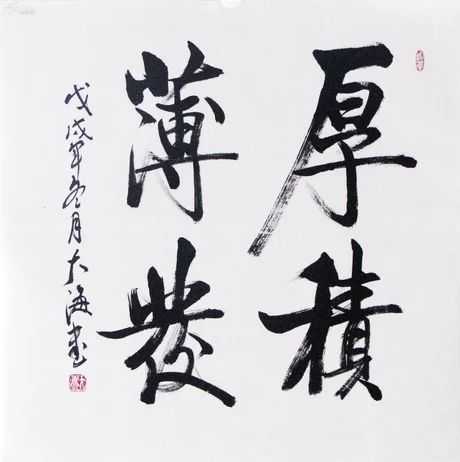 厚積
薄發
戊戌年冬月大海書